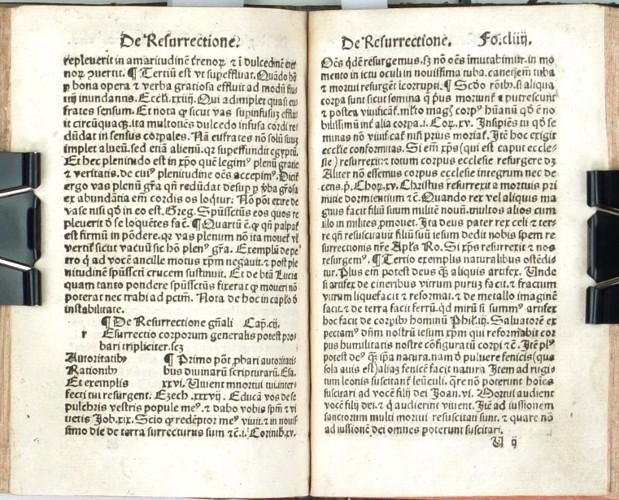 De Resurrectione.
repleuerit in amaritudinem
Tertiũ est vt supeffluat. Quãdo
bona opera & verba gratiosa effluit ad modũ
inundans. Eccli. xxiiij. Qui adimplet quasi eu
frates sensum. Et nota
circũquaq; ita multotiẽs dulcedo infusa cordi re
dũdat in sensus corpales. Nã eufrates nõ solũ
implet alueũ. sed etiã alienũ. qz supeffundit egyptũ
Et hec plenitudo est in xpõ que legim⁹ plenũ gratie
& veritatis. de cui⁹ plenitudine oẽs accepim⁹.
ergo vas plenũ
ex abũdãtia em̃ cordis os loqtur: Nõ põt exire de
vase nisi qd in eo est. Greg. Spũssctũs eos quos re
pleuerit
est firmũ in põdere. qz vas plenum nõ ita
sicut vacuũ Exemplũ de pe
tro q ad vocẽ ancille motus xpm negauit. & post ple
nitudinẽ spũssctĩ crucem sustinuit. Et de btã Lucia
quam tanto pondere spũssctũs fixerat
poterat nec trahi ad pctm̃. Nota de hoc in
instabilitate.
¶ De Resurrectione gñali Cap. cij.
r Esurrectio corporum generalis potest pro
bari tripliciter. scz
Autoritatib⁹ ¶ Primo põt pbari autoritati
Rationib⁹ bus diuinarũ scripturarũ. Esa.
Et exemplis xxvi. Uiuent mortui tui inter
fecti tui resurgent. Ezech. xxxvij. Educã vos de se
pulchris vestris popule me⁹. & dabo vobis spm̃ & vi
uetis Job. xix. Scio
simo die de terra surrecturus sum &c̃. i. Corinth. xv.
De Resurrectione. Fo. cliiij.
Oẽs qdẽ resurgemus. sz nõ oẽs imutabimur. in mo
mento in ictu oculi in nouissima tuba. canet em̃ tuba
& mortui resurgẽt icorrupti. ¶ Scdo si aliqua
corpa sunt sicut semina putrescunt
& postea
bilissimũ int̃ alia corpa. i. Cor. xv. Insipiẽs tu qd se
minas nõ viuificat nisi prius moriat̃. Itẽ hoc exigit
ecclesie conformitas. Si em̃ xps (qui est caput eccle-
sie) resurrexit: & totum corpus ecclesie resurgere dz
Aliter nõ essemus corpus ecclesie integrum nec de
cens. Christus resurrexit a mortuis pri
mitie dormientium &c̃. Quando rex vel aliquis ma
gnus facit filiũ suum militẽ nouũ. multos alios cum
illo in milites pmouet. Ita deus pater rex celi & ter
re qñ resuscitauit filiũ suũ iesum dedit nobis spem re
surrectionis Ro. Si xps resurrexit & nos
resurgem⁹. ¶ Tertio exemplis naturalibus ostẽdi
tur. Plus em̃ potest deus aliquis artifex. Unde
si artifex de cineribus vitrum puruz facit. & fractum
vitrum liquefacit & reformat. & de metallo imaginẽ
facit. & de terra facit ferrũ. qd mirũ si summ⁹ artifex
hoc facit de corpib⁹ hominũ Saluatorẽ ex
pectam⁹ dñm nostrũ iesum xpm qui reformabit cor
pus humilitatis nostre cõfiguratũ corpi
potest natura. nam d puluere fenicis (que
sola auis est) aliaz fenicẽ facit natura Item ad rugi-
tum leonis suscitant̃ leũculi. qre nõ poterunt hoĩes
suscitari ad vocẽ filij dei Joan. vi. Mortui audient
vocẽ filij dei. & q audierint viuent. Itẽ ad iussionem
sanctorum multi mortui resuscitati sunt. & quare nõ
ad iussionẽ dei omnes poterunt suscitari.
U ij